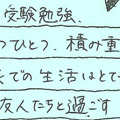 受験勉強、
つひとつ、積み重
での生活はとて
友人たちと過ごす